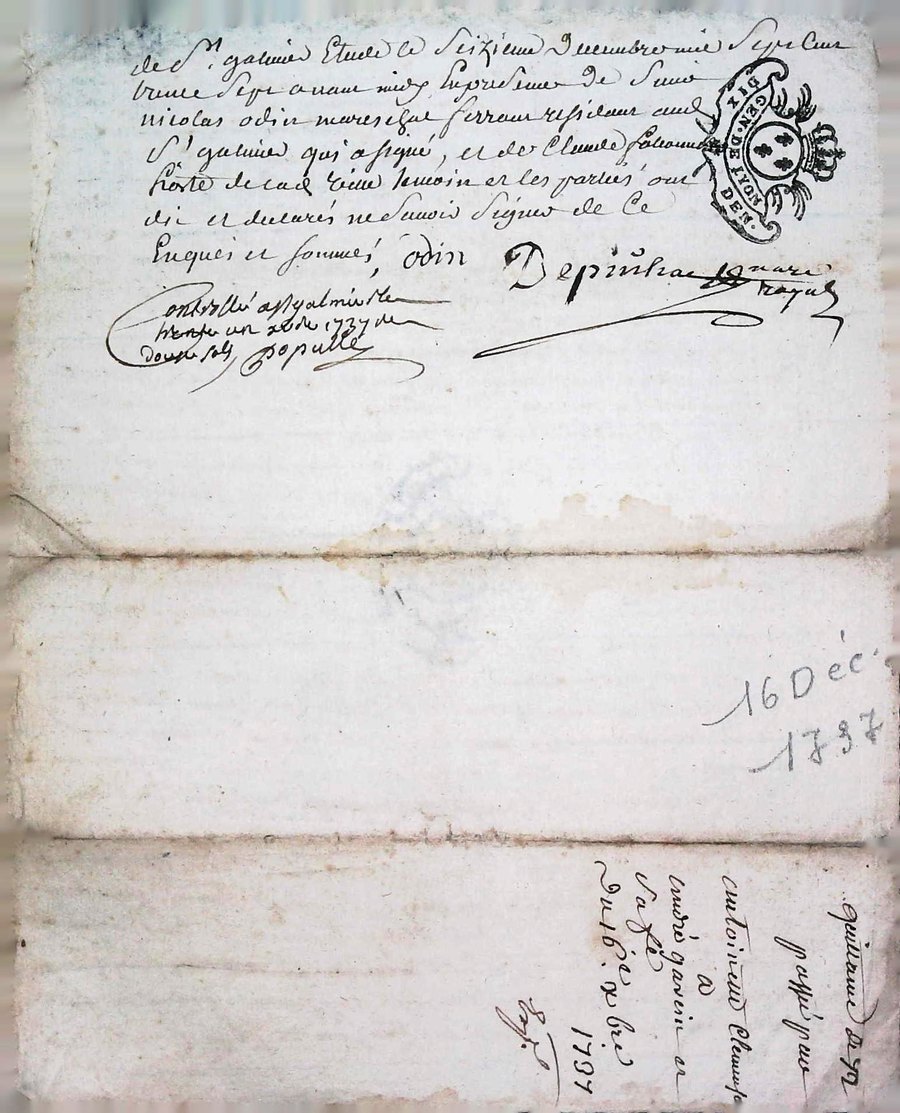 de St. galmier Etude le Seizieme Decembre mil Sept Cent
trente Sept avant midy En presence de Sieur
nicolas odin mareschal ferrant residant aud
St galmier qui a signé, et de Claude
hoste de lad ville temoin et les parties ont
dit et declarés ne Savoir Signer de Ce
Enquis et sommés, odin
GEN. DE LYON
DIX DEN.
notaire
royal
Controllé a St galmier le
trente un xbre 1737 Rec
douze sols populle
16 Déc.
1737
quittance de 72
passé par
antoinette Clemenson
a
andré garein et
Sa fe
Du 16e xbre
1737
Exp.